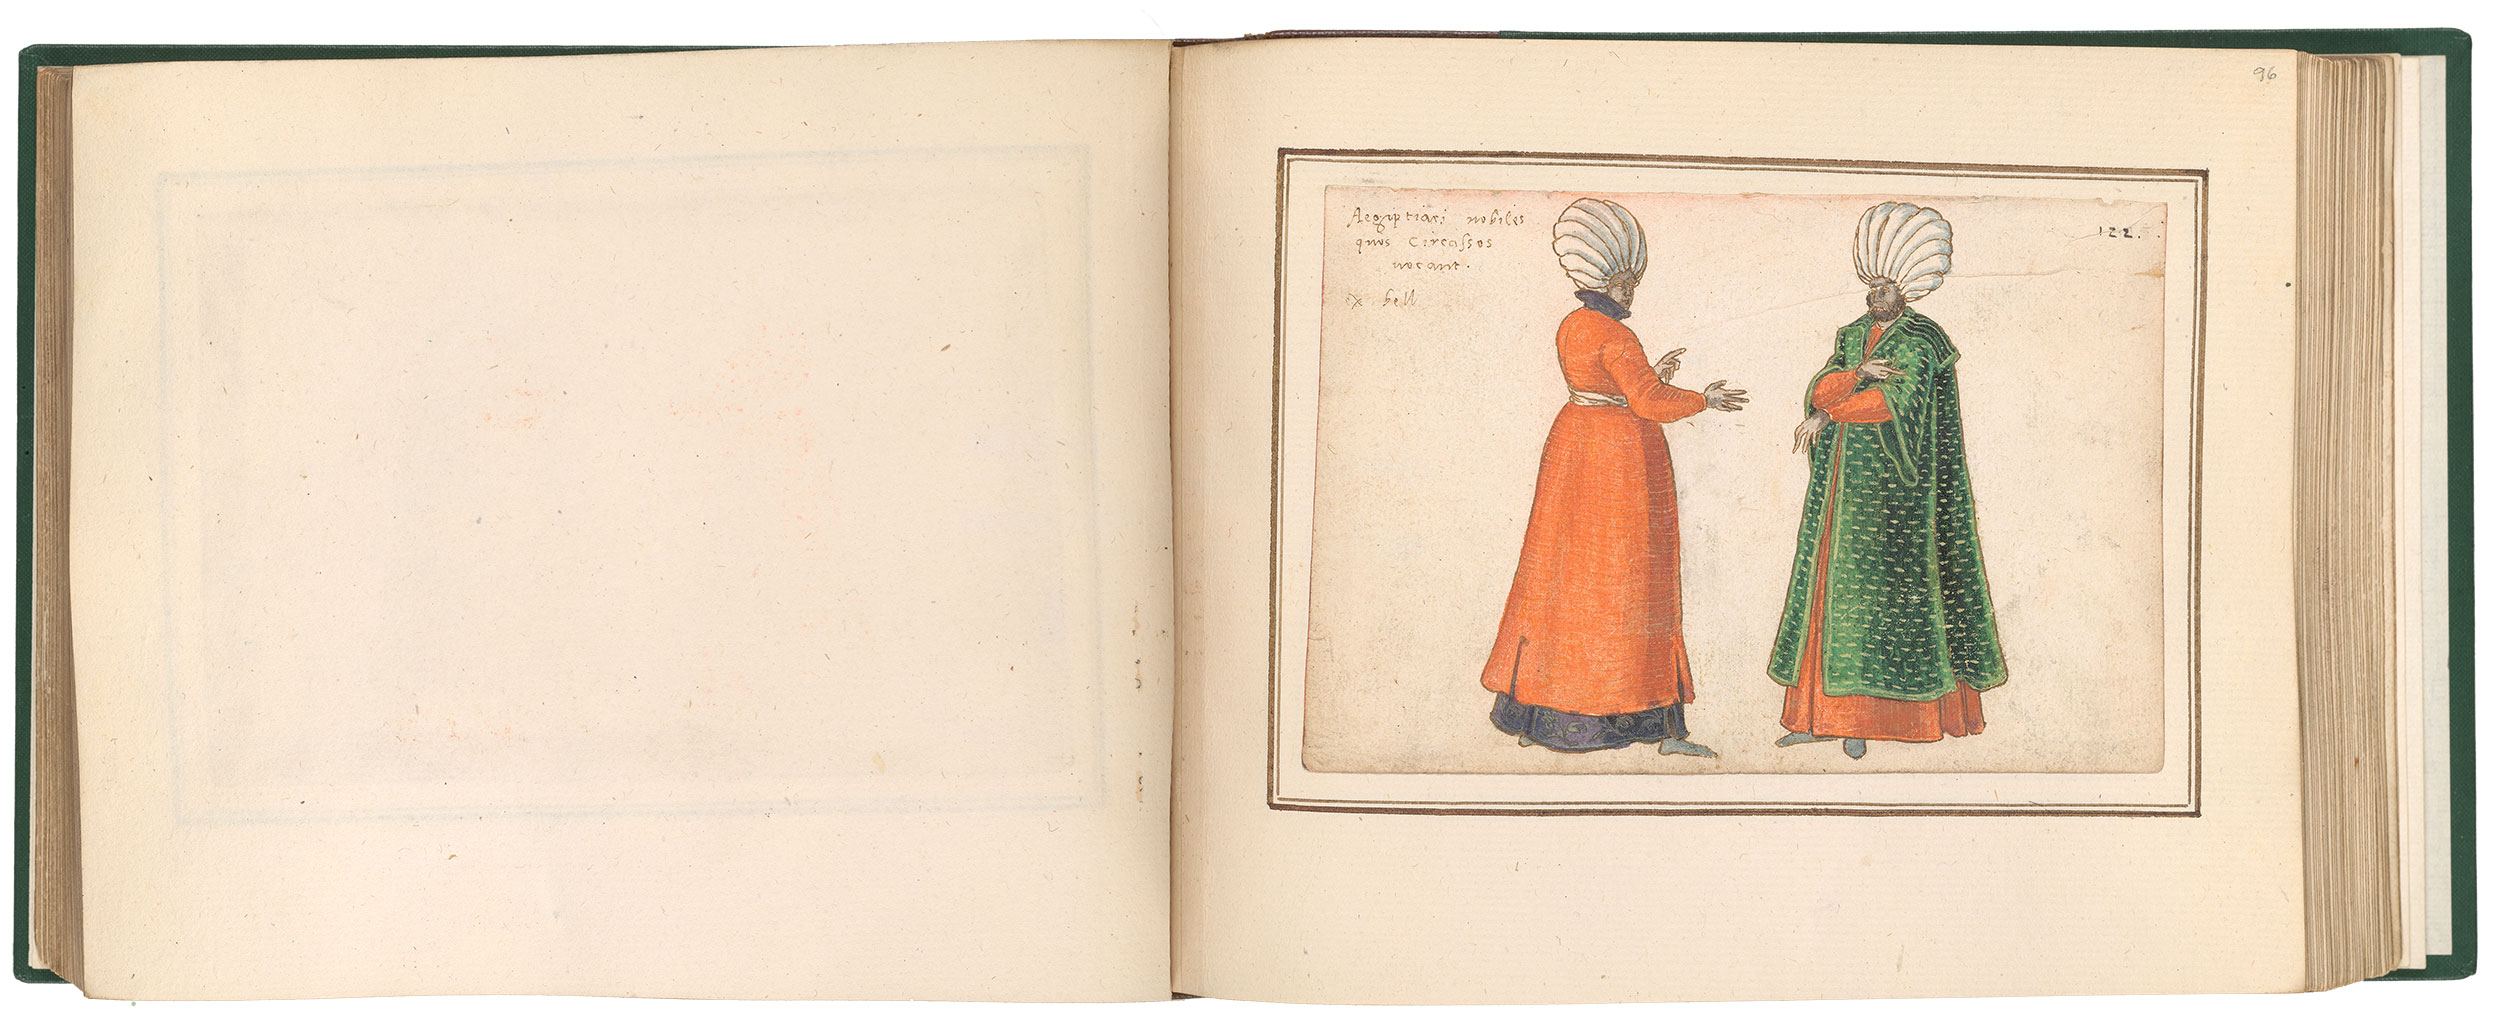 96
Aegiptiaci nobiles
quos Circassos
vocant.
ex bell
122.